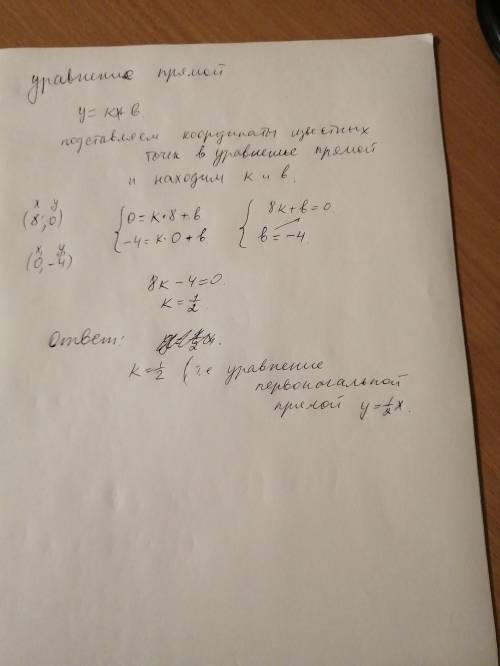 уравнение прямой
y = kx+ b.
подставляем координаты известных
точек в уравнение прямой
и находим k и b.
x y
(8; 0)
{ 0 = k·8 + b
{ 8k + b = 0.
x y
(0, -4)
-4 = k·0 + b
b = -4.
8k - 4 = 0.
k = 1/2
Ответ:
k = 1/2 (т.е уравнение
первоначальной
прямой y = 1/2 x.